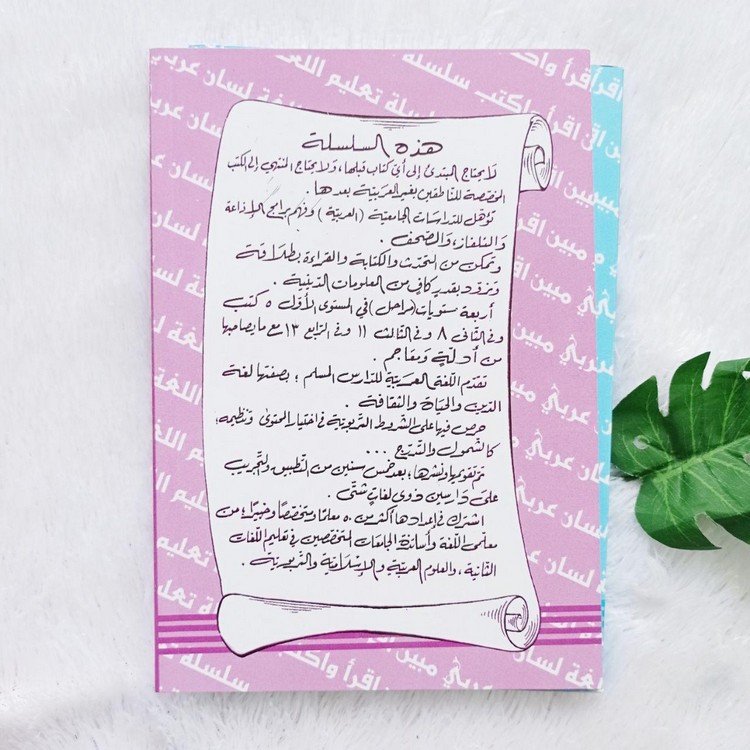 هذه السلسلة
لَا يحتاج المبتدئ إلى أيّ كتاب قبلها، وَلَا يحتاج المنتهي إلى الكتب
المخصّصة للنّاطقين بغير العَرَبيّة بعدها.
تؤهّل للدّراسَات الجامعيّة (العربيّة) وَفهم برامج الإذاعة
وَالتلفاز، وَالصّحف.
وتمكّن من التحدّث والكتابة والقراءة بطلاقة
وَتزوّد بقدرٍ كافٍ من العلومات الدّينية.
أربعة مستويات (مراحل) في المستوى الأوّل ٥ كتب
وفي الثّاني ٨ وفي الثالث ١١ وفي الرّابع ١٣ مع ما يصاحبها
من أدلّةٍ وَمعَاجم.
تقدّم اللّغة العَرَبيّة للدّارس المسلم؛ بصفتها لغة
الدّين والحيَاة والثّقافة.
حرص فيها على الشّروط التّربويّة في اختيار المحتوى وَتنظيمه؛
كالشّمول والتّدرّج ...
تمّ تقويمها ونشرها؛ بعد خمس سنين من التّطبيق والتّجريب
على دَارسين ذوي لغاتٍ شتّى.
اشترك في إعدادها أكثر من ٥٠ معلّمًا ومتخصّصًا وَخبيرًا؛ من
معلّمي اللّغة وأساتذة الجامعَات المتخصّصين في تعليم اللّغات
الثانية، والعلوم العربيّة والإسلاميّة والتّربويّة.
سلسلة تعليم اللغة
اقرأ واكتب سلسلة
لسان عربي مبين